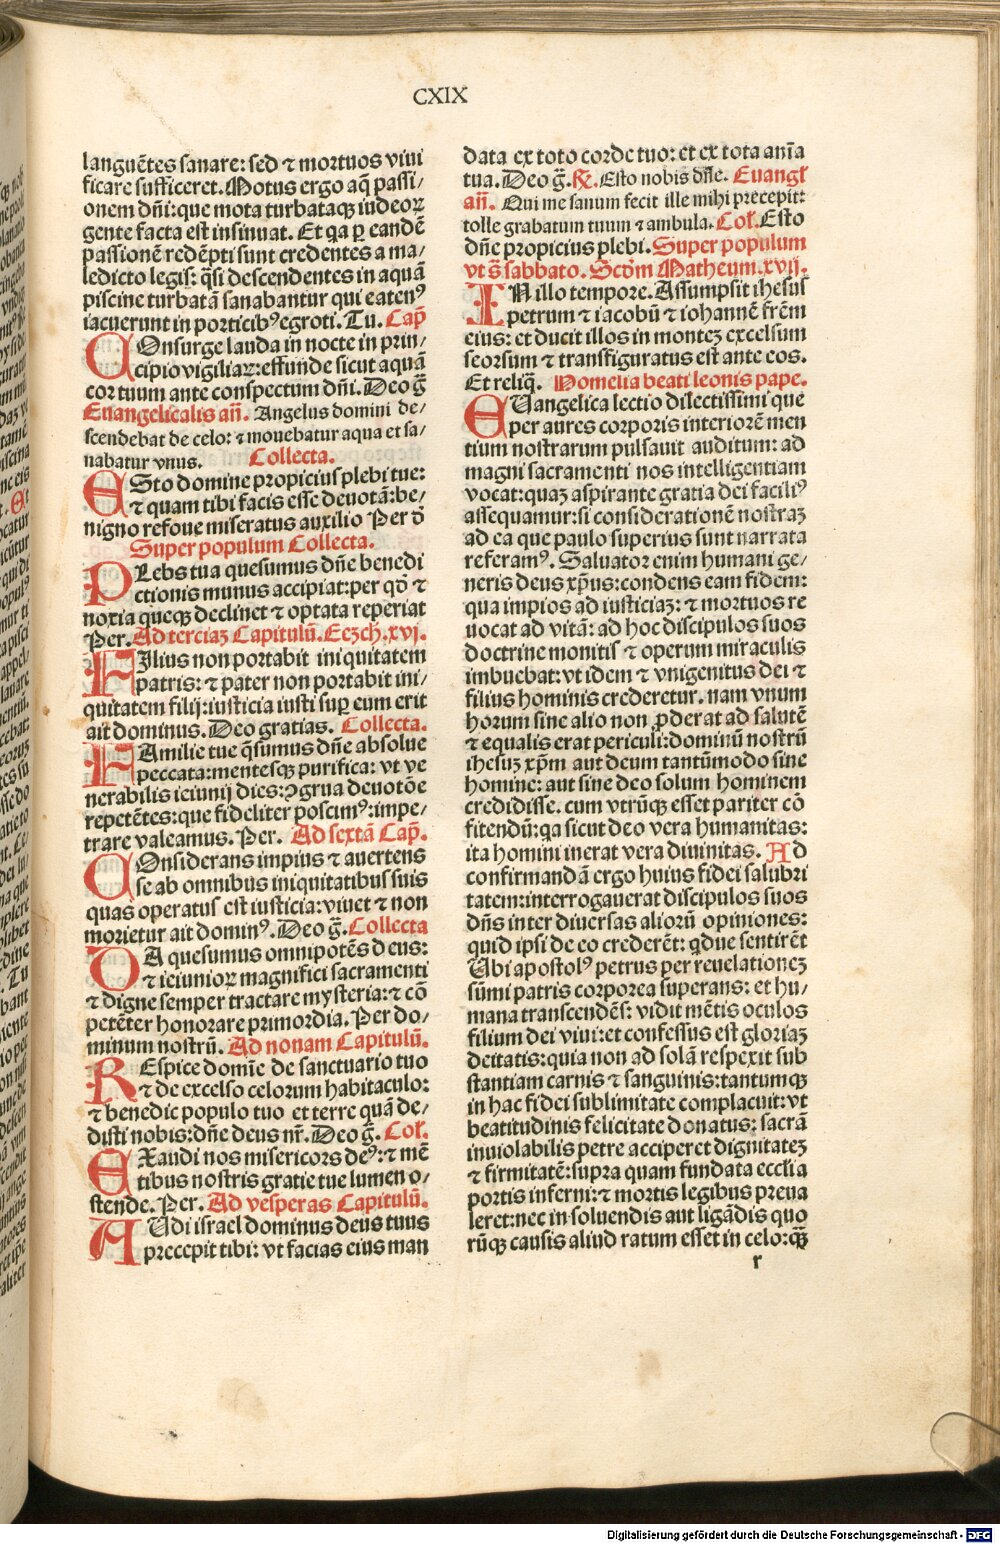 CXIX
languētes sanare: sed ⁊ mortuos viui
ficare sufficeret. Motus ergo aq̄ passi/
onem dn̄i: que mota turbataqꝫ iudeoꝝ
gente facta est insinuat. Et qa ꝑ eandē
passionē redēpti sunt credentes a ma/
ledicto legis: q̄si descendentes in aquā
piscine turbatā sanabantur qui eatenꝰ
iacuerunt in porticibꝰ egroti. Tu. Cap̄
COnsurge lauda in nocte in prin/
cipio vigiliaꝝ: effunde sicut aquā
cor tuum ante conspectum dn̄i. Deo ḡ
Euangelicalis an̄. Angelus domini de/
scendebat de celo: ⁊ mouebatur aqua et sa/
nabatur vnus. Collecta.
ESto domine propicius plebi tue:
⁊ quam tibi facis esse deuotā: be/
nigno refoue miseratus auxilio Per d̄
Super populum Collecta.
PLebs tua quesumus dn̄e benedi
ctionis munus accipiat: per qd̄ ⁊
noxia queqꝫ declinet ⁊ optata reperiat
Per. Ad terciaꝫ Capitulū. Eczch. xvj.
FIlius non portabit iniquitatem
patris: ⁊ pater non portabit ini/
quitatem filij: iusticia iusti suꝑ eum erit
ait dominus. Deo gratias. Collecta.
FAmilie tue q̄sumus dn̄e absolue
peccata: mentesqꝫ purifica: vt ve
nerabilis ieiunij dies: ꝯgrua deuotōe
repetētes: que fideliter poscimꝰ: impe/
trare valeamus. Per. Ad sextā Cap̄.
COnsiderans impius ⁊ auertens
se ab omnibus iniquitatibus suis
quas operatus est iusticia: viuet ⁊ non
morietur ait dominꝰ. Deo ḡ. Collecta
DA quesumus omnipotēs deus:
⁊ ieiunioꝝ magnifici sacramenti
⁊ digne semper tractare mysteria: ⁊ cō
petēter honorare primordia. Per do/
minum nostrū. Ad nonam Capitulū.
REspice domīe de sanctuario tuo
⁊ de excelso celorum habitaculo:
⁊ benedic populo tuo et terre quā de/
disti nobis: dn̄e deus nr̄. Deo ḡ. Coł.
EXaudi nos misericors deꝰ: ⁊ mē
tibus nostris gratie tue lumen o/
stende. Per. Ad vesperas Capitulū.
AUdi israel dominus deus tuus
precepit tibi: vt facias eius man
data ex toto corde tuo: et ex tota anīa
tua. Deo ḡ. ℟. Esto nobis dn̄e. Euangł
an̄. Qui me sanum fecit ille mihi precepit:
tolle grabatum tuum ⁊ ambula. Coł. Esto
dn̄e propicius plebi. Super populum
vt s̄ sabbato. Scd̄m Matheum. xvij.
IN illo tempore. Assumpsit ihesus
petrum ⁊ iacobū ⁊ iohannē frēm
eius: et ducit illos in monteꝫ excelsum
seorsum ⁊ transfiguratus est ante eos.
Et reliq̄. Homelia beati leonis pape.
EUangelica lectio dilectissimi que
per aures corporis interiorē men
tium nostrarum pulsauit auditum: ad
magni sacramenti nos intelligentiam
vocat: quaꝫ aspirante gratia dei faciliꝰ
assequamur: si considerationē nostraꝫ
ad ea que paulo superius sunt narrata
referamꝰ. Saluator enim humani ge/
neris deus xp̄us: condens eam fidem:
qua impios ad iusticiaꝫ: ⁊ mortuos re
uocat ad vitā: ad hoc discipulos suos
doctrine monitis ⁊ operum miraculis
imbuebat: vt idem ⁊ vnigenitus dei ⁊
filius hominis crederetur. nam vnum
horum sine alio non ꝓderat ad salutē
⁊ equalis erat periculi: dominū nostrū
ihesuꝫ xp̄m aut deum tantūmodo sine
homine: aut sine deo solum hominem
credidisse. cum vtrūqꝫ esset pariter cō
fitendū: qa sicut deo vera humanitas:
ita homini inerat vera diuinitas. Ad
confirmandā ergo huius fidei salubri
tatem: interrogauerat discipulos suos
dn̄s inter diuersas aliorū opiniones:
quid ipsi de eo crederēt: qdue sentirēt
Ubi apostolꝰ petrus per reuelationeꝫ
sūmi patris corporea superans: et hu/
mana transcendēs: vidit mētis oculos
filium dei viui: et confessus est gloriaꝫ
deitatis: quia non ad solā respexit sub
stantiam carnis ⁊ sanguinis: tantumqꝫ
in hac fidei sublimitate complacuit: vt
beatitudinis felicitate donatus: sacrā
inuiolabilis petre acciperet dignitateꝫ
⁊ firmitatē: supra quam fundata ecclīa
portis inferni: ⁊ mortis legibus preua
leret: nec in soluendis aut ligādis quo
rūqꝫ causis aliud ratum esset in celo: q̄ꝫ
r
Digitalisierung gefördert durch die Deutsche Forschungsgemeinschaft - DFG